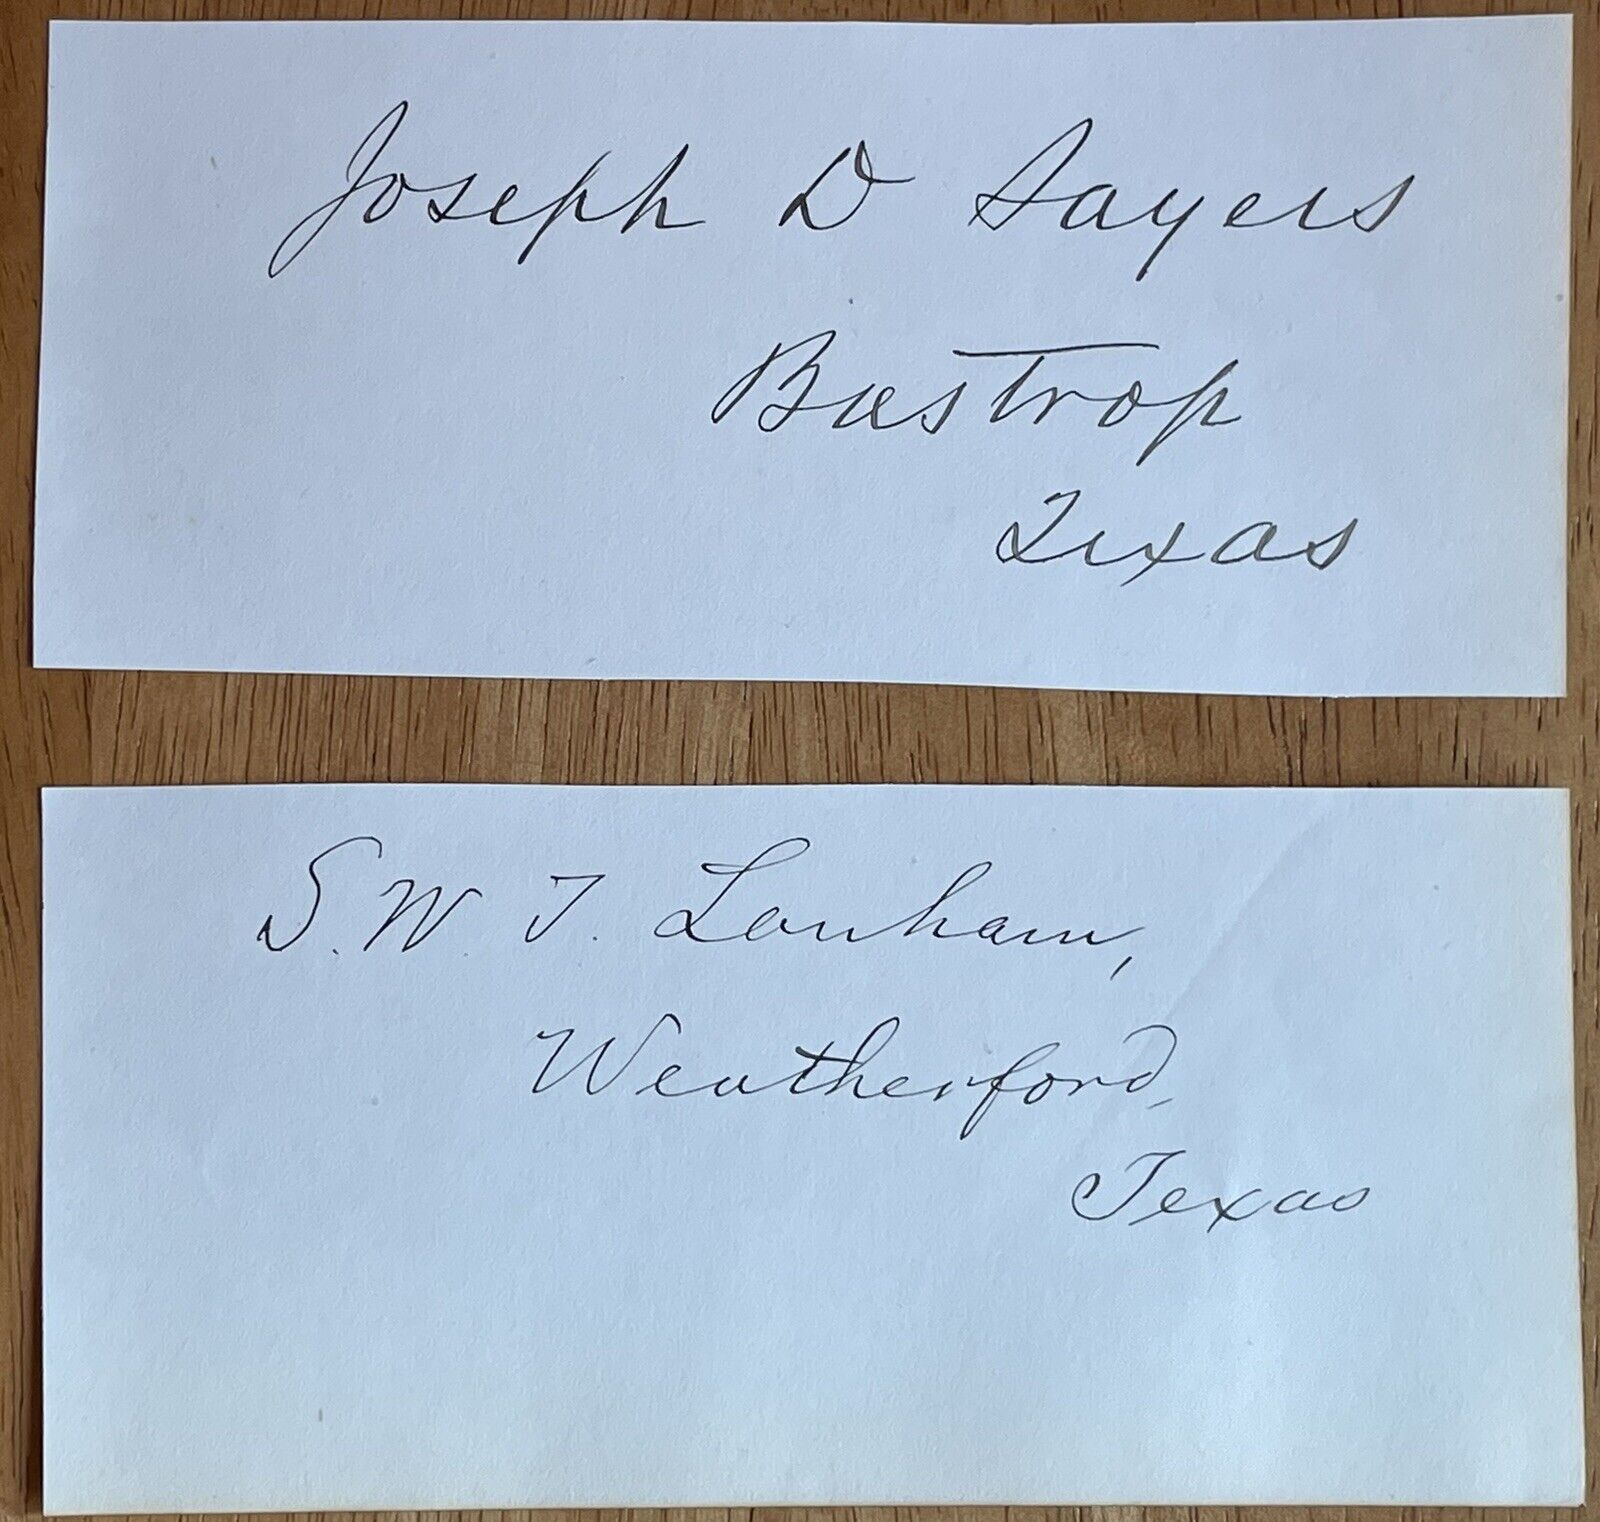 Joseph D Sayers
Bastrop
Texas
S. W. T. Lanham,
Weatherford,
Texas